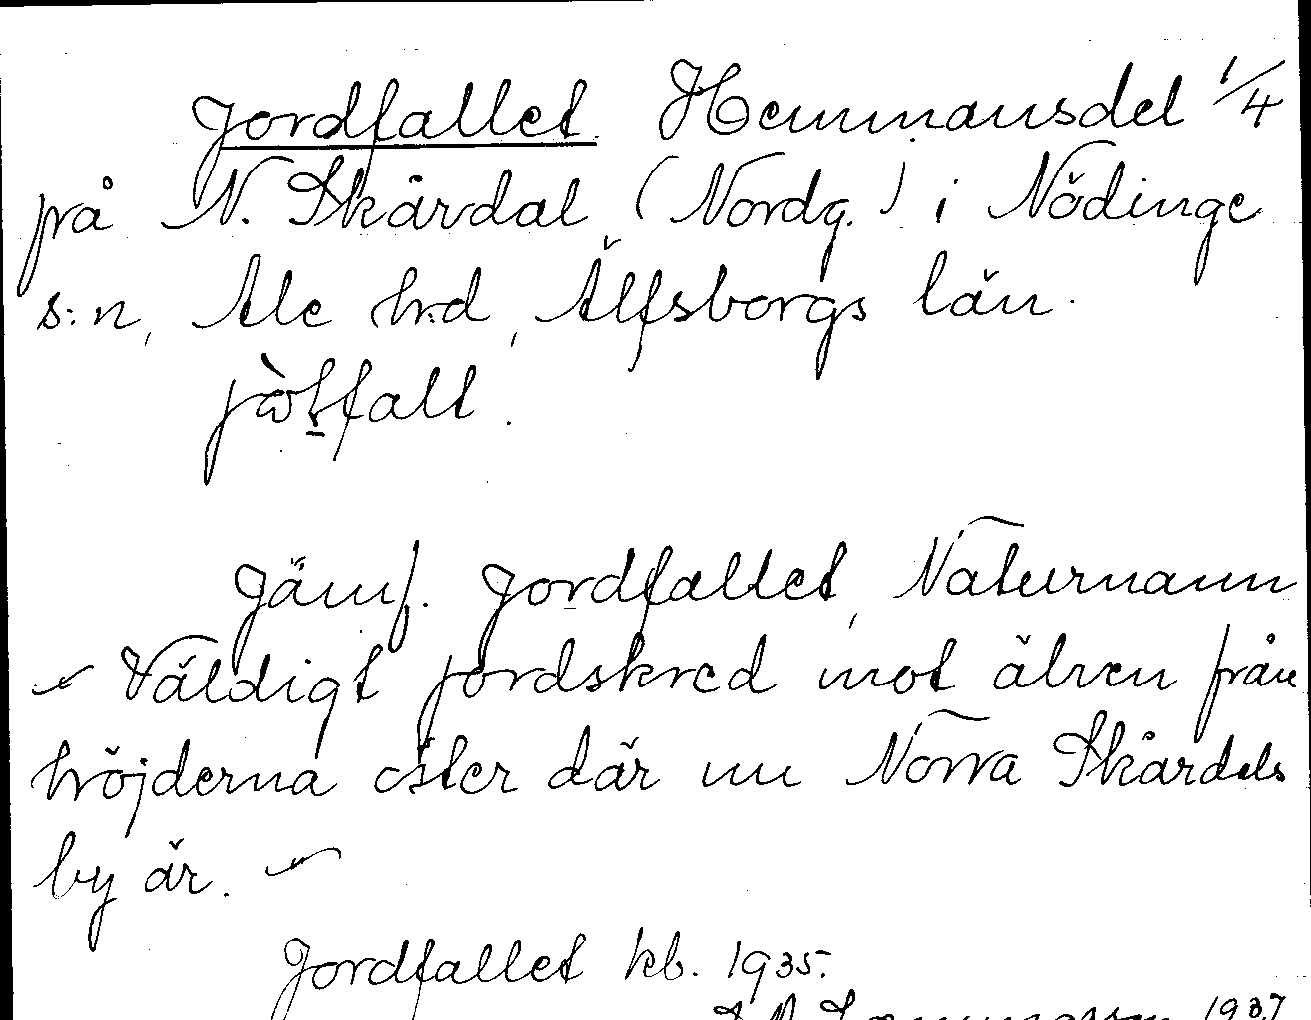 Jordfallet. Hemmansdel 1/4
på N. Skårdal (Nordg.) i Nödinge
s:n, Ale h:d, Älfsborgs län.
Jämf. Jordfallet, Naturnamn
Väldigt jordskred mot älven från
höjderna öster där nu Norra Skårdals
by är.
Jordfallet kb. 1935.
1937